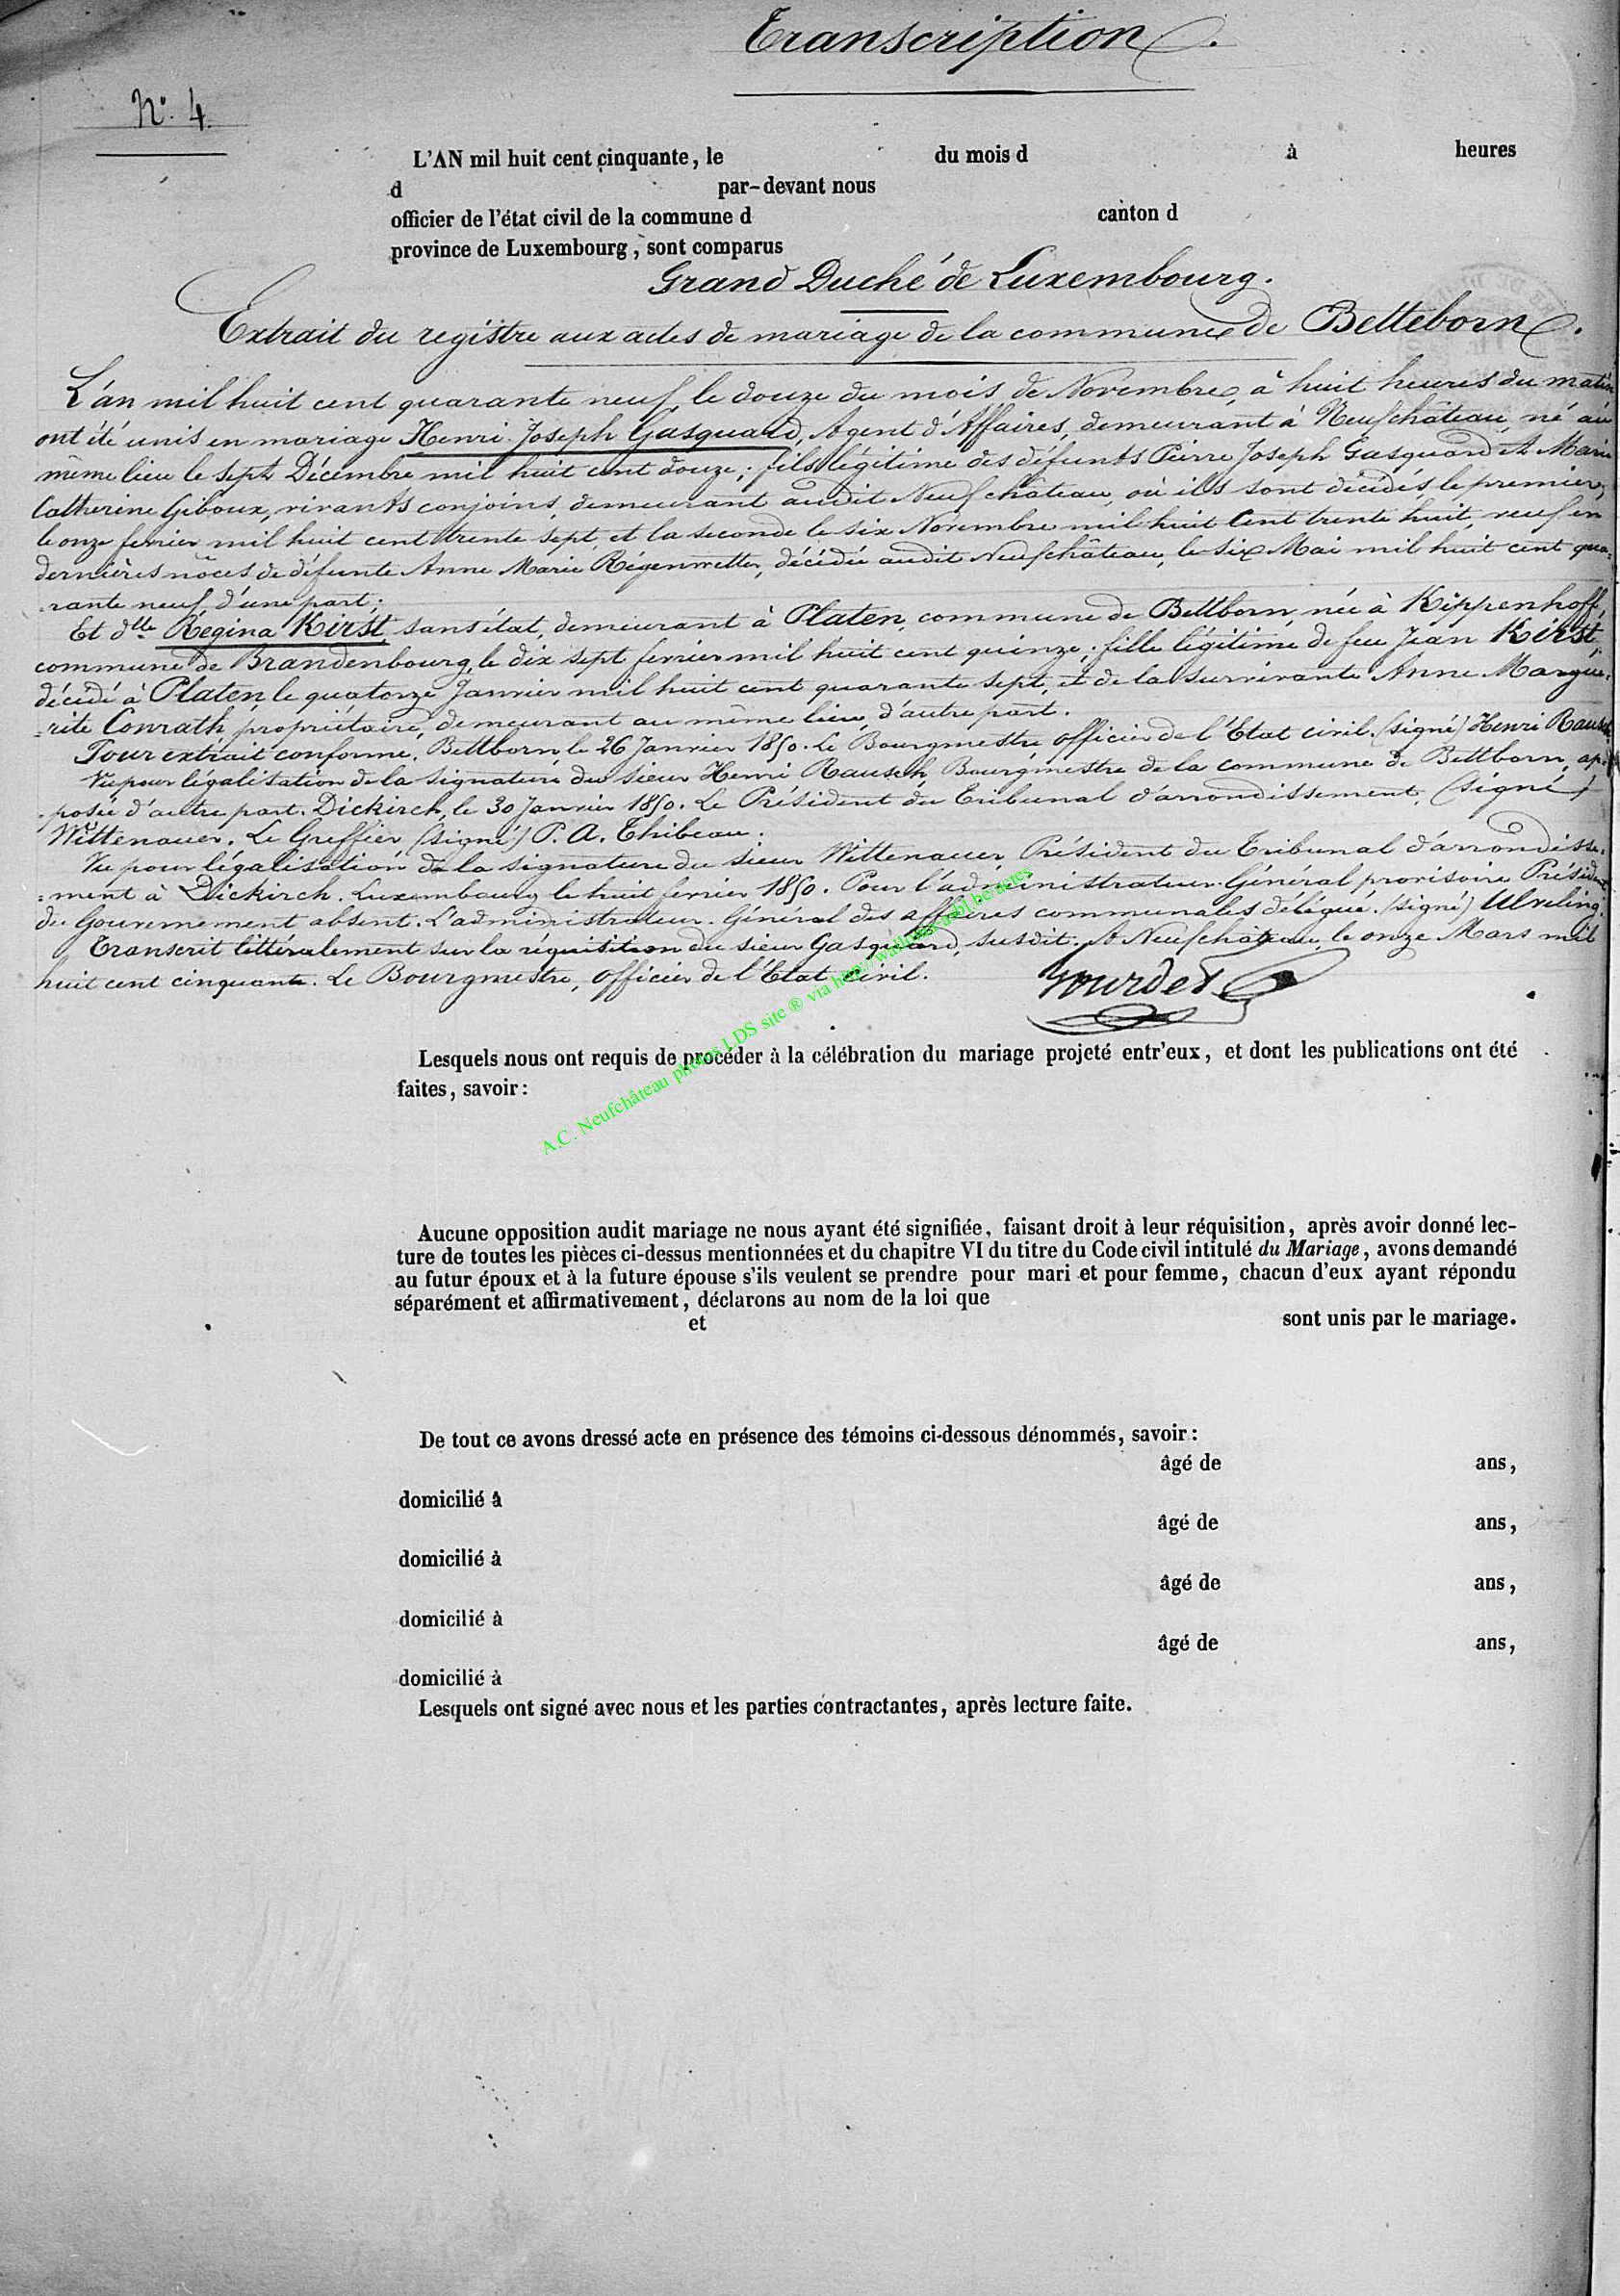 Transcription.
N° 4.
L'AN mil huit cent cinquante, le du mois d à heures
d par-devant nous
officier de l'état civil de la commune d canton d
province de Luxembourg, sont comparus
Grand Duché de Luxembourg.
Extrait du registre aux actes de mariage de la commune de Betteborn.
L'án mil huit cent quarante neuf, le douze du mois de Novembre, à huit heures du matin
ont été unis en mariage Henri Joseph Gasquard, Agent d'Affaires, demeurant à Neufchâteau, né au
même lieu le sept Décembre mil huit cent douze; fils légitime des défunts Pierre Joseph Gasquard et Marie
Catherine Giboux, vivants conjoins, demeurant audit Neufchâteau, où ils sont décédés, le premier,
le onze fevrier mil huit cent trente sept, et la seconde le six Novembre mil huit Cent trente huit, veuf en
dernières nôces de défunte Anne Marie Régenwetter, décédée audit Neufchâteau, le six Mai mil huit cent qua-
-rante neuf d'une part;
Et dlle Régina Kirst, sans état, demeurant à Platen, commune de Bettborn, née à Kippenhoff,
commune de Brandenbourg, le dix sept fevrier mil huit cent quinze; fille légitime de feu Jean Kirst,
décédé à Platen, le quatorze Janvier mil huit cent quarante sept, et de la survivante Anne Margue-
-rite Conrath, propriétaire, demeurant au même lieu, d'autre part.
Pour extrait conforme, Bettborn, le 26 Janvier 1850. Le Bourgmestre officier de l'Etat civil. (signé) Henri Rausch
Vu pour légalisation de la signature du sieur Henri Rausch Bourgmestre de la commune de Bettborn, ap-
-posée d'autre part. Dickirch, le 30 Janvier 1850. Le Président du Tribunal d'arrondissement, (signé)
Wittenauer. Le Greffier (signé) P. A. Thibeau.
Vu pour légalisation de la signature du sieur Wittenauer Président du Tribunal d'arrondisse-
=ment à Dickirch. Luxembourg le huit fevrier 1850. Pour l'administrateur-Général provisoire Président
du Gouvernement absent. L'administrateur-Général des affaires communales délégué. (signé) Ulveling.
Transcrit littéralement sur la réquisition du sieur Gasquard, susdit. A Neufchâteau, le onze Mars mil
huit cent cinquante. Le Bourgmestre, officier de l'Etat civil.
Gourdet
A.C. Neufchâteau photos LDS site ® via
Lesquels nous ont requis de procéder à la célébration du mariage projeté entr'eux, et dont les publications ont été
faites, savoir :
Aucune opposition audit mariage ne nous ayant été signifiée, faisant droit à leur réquisition, après avoir donné lec-
ture de toutes les pièces ci-dessus mentionnées et du chapitre VI du titre du Code civil intitulé du Mariage, avons demandé
au futur époux et à la future épouse s'ils veulent se prendre pour mari et pour femme, chacun d'eux ayant répondu
séparément et affirmativement, déclarons au nom de la loi que
et sont unis par le mariage.
De tout ce avons dressé acte en présence des témoins ci-dessous dénommés, savoir :
âgé de ans,
domicilié à
âgé de ans,
domicilié à
âgé de ans,
domicilié à
âgé de ans,
domicilié à
Lesquels ont signé avec nous et les parties contractantes, après lecture faite.